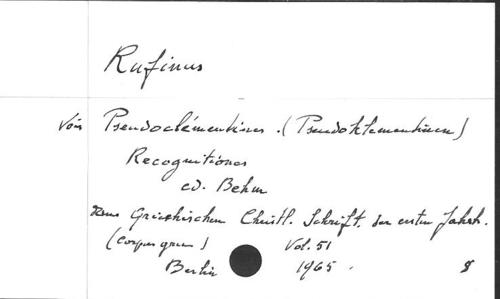 Rufinus
Voir Pseudoclémentines. (Pseudoklementinen)
Recognitiones
ed. Behm
Griechischen Christl. Schrift. der ersten Jahrh.
(Corpus grec) Vol. 51
Berlin 1965. 8